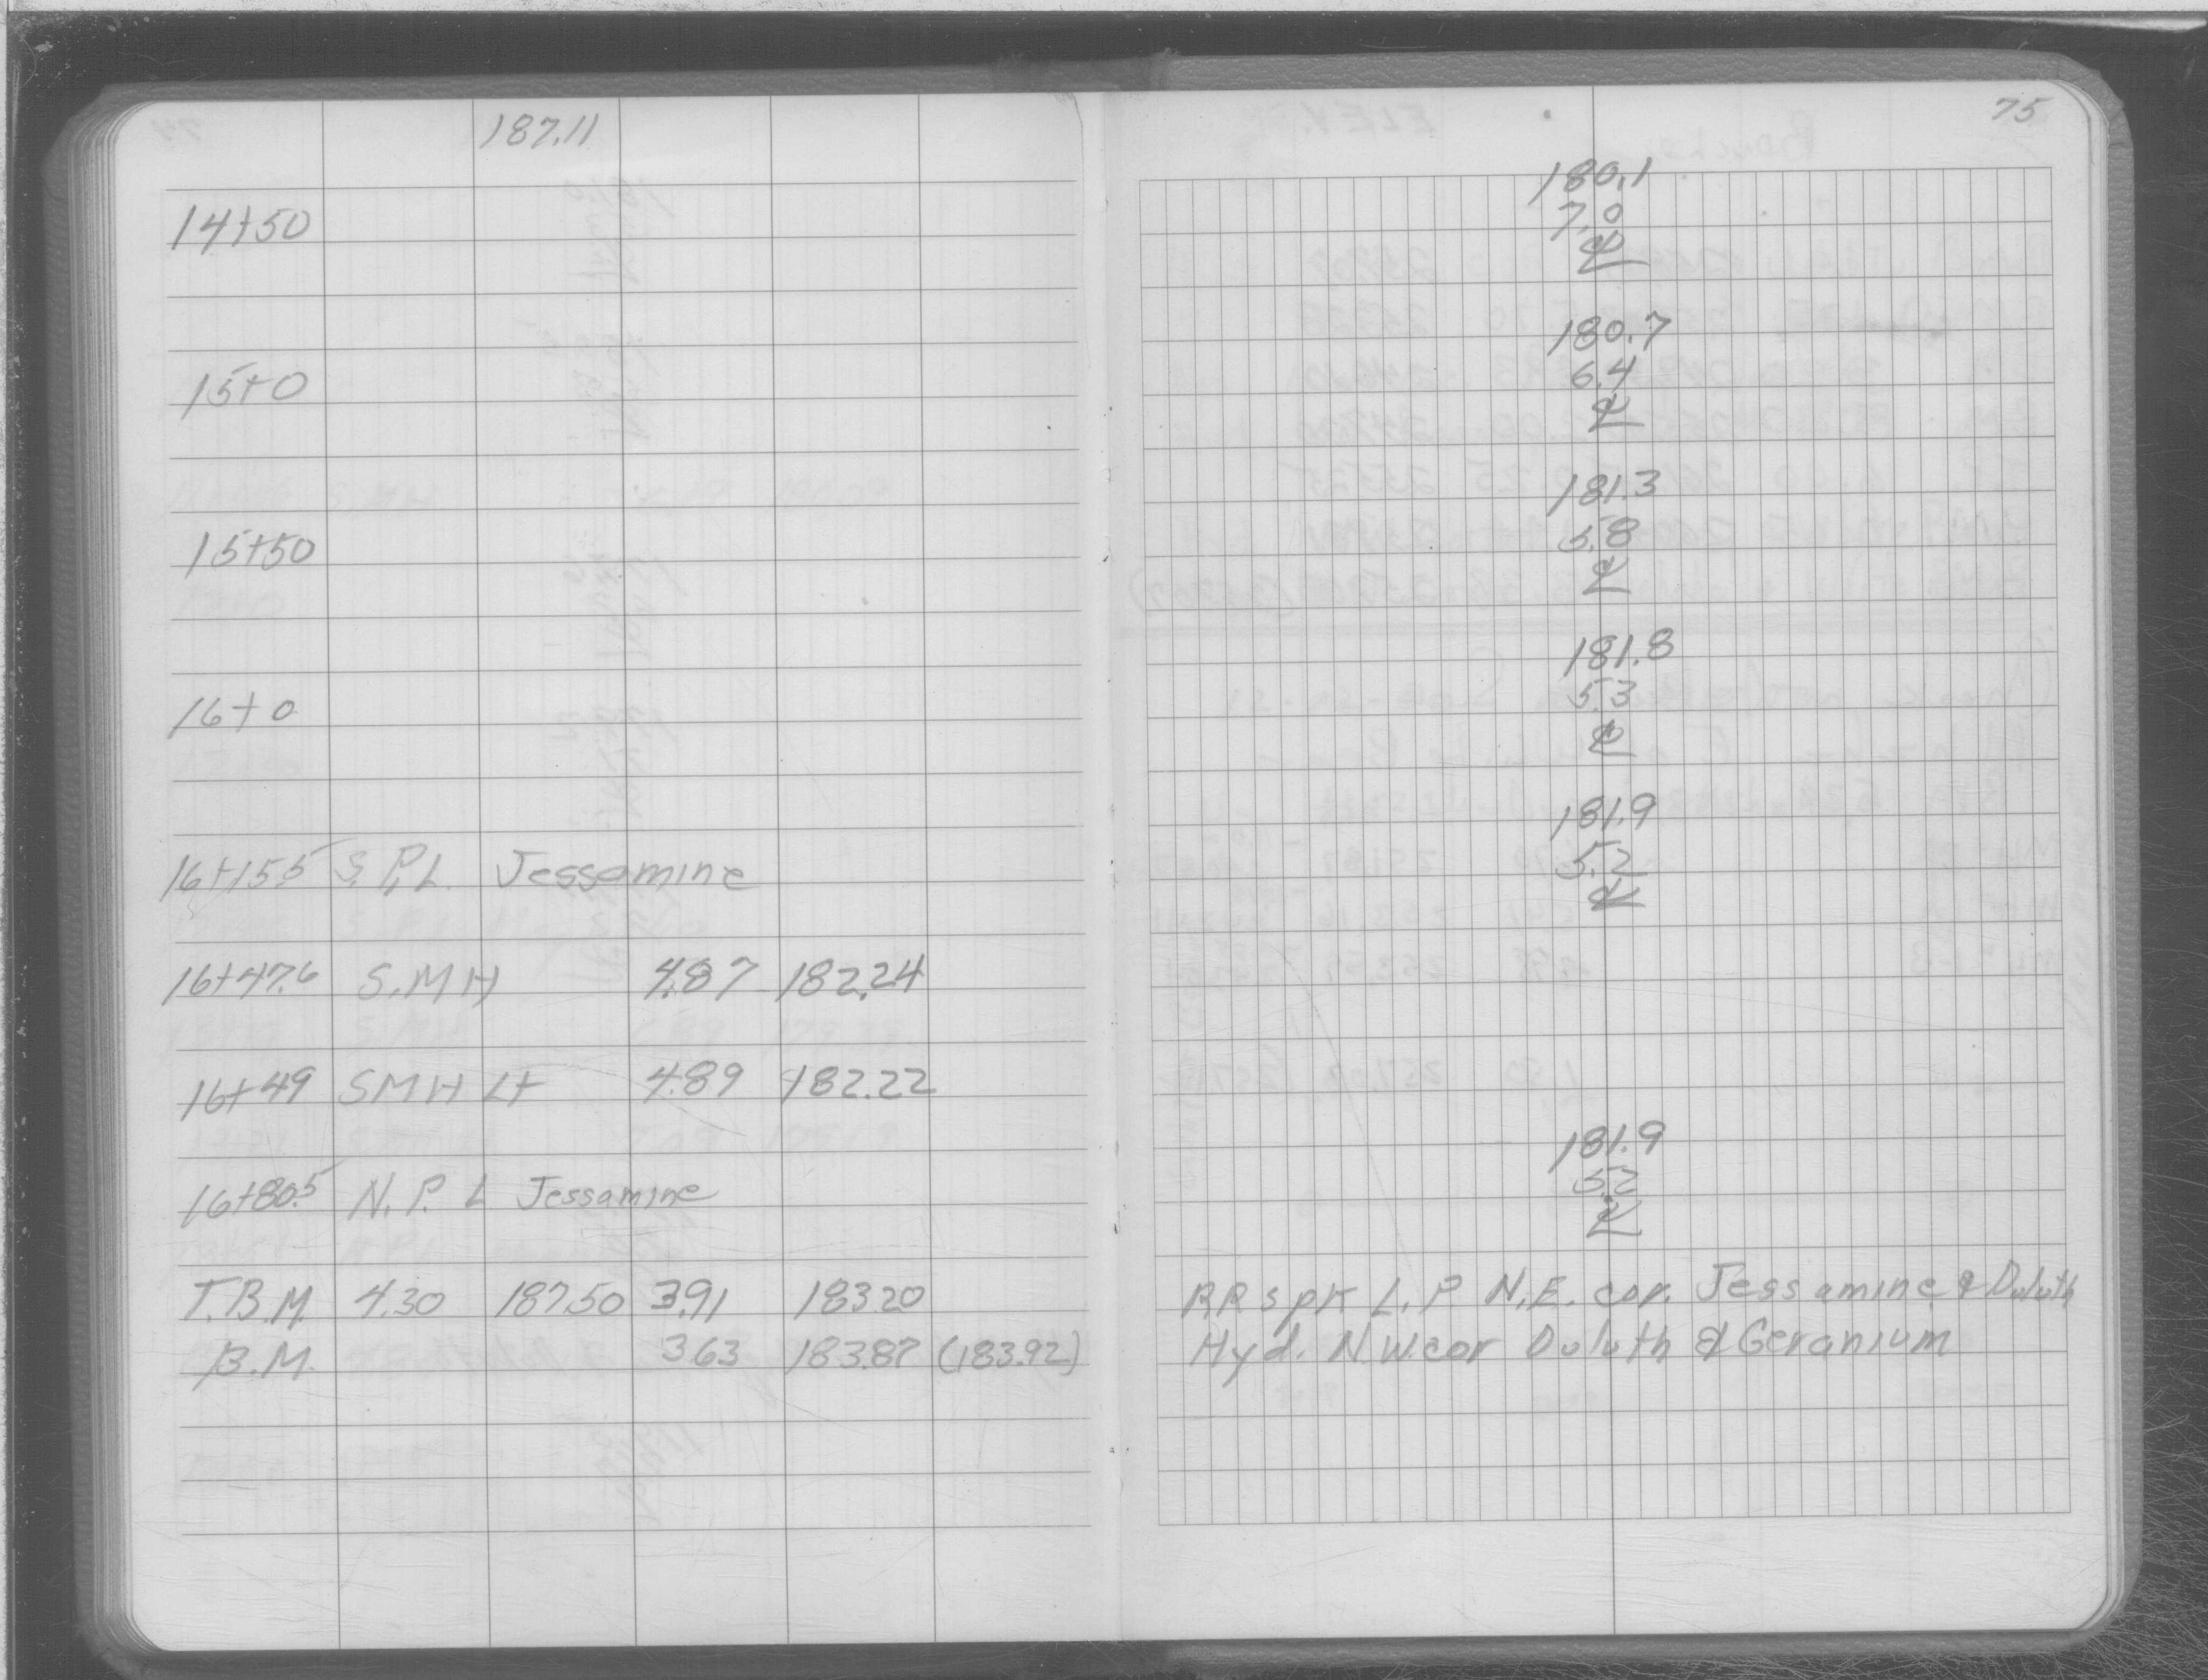 187.11
75
180.1
14+50 7.0
℄
180.7
15+0 6.4
℄
181.3
15+50 5.8
℄
181.8
16+0 5.3
℄
181.9
16+15.5 S.P.L. Jessamine 5.2
℄
16+47.6 S.M H 4.87 182.24
16+49 SMH Lt 4.89 182.22
181.9
16+80.5 N.P.L Jessamine 5.2
℄
T.B.M. 4.30 187.50 3.91 183.20 RR spk L.P N.E. cor. Jessamine & Duluth
B.M. 3.63 183.87 (183.92) Hyd. N.W.cor Duluth & Geranium